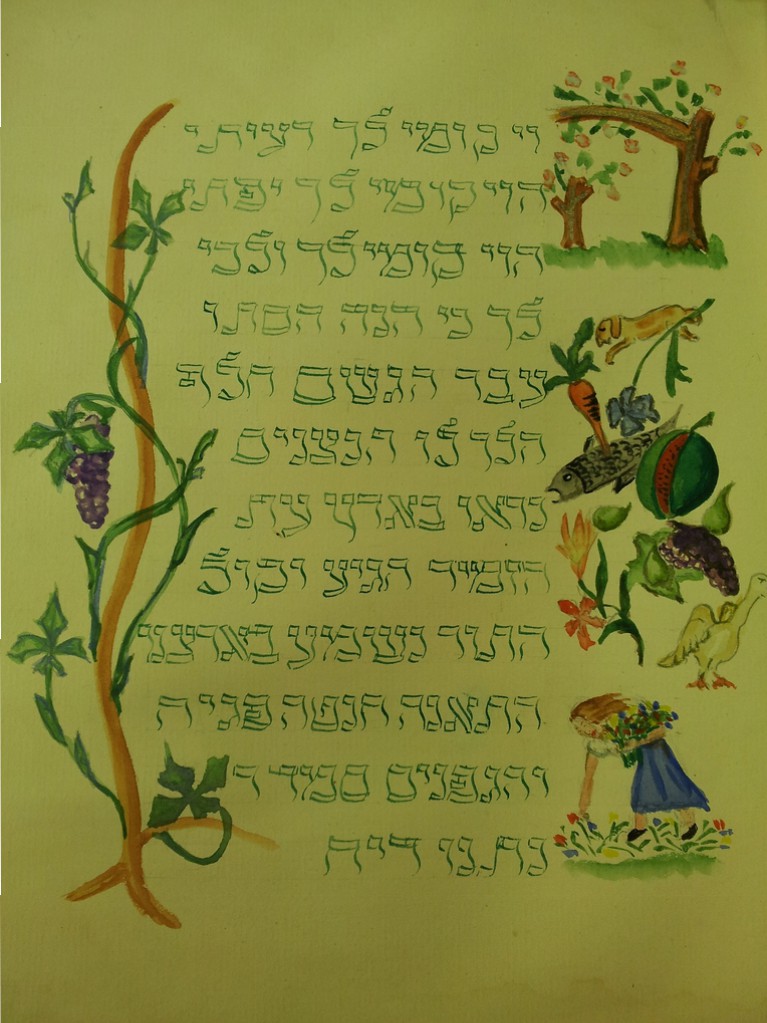 קומי לך רעיתי
הוי קומי לך יפתי
הוי קומי לך ולכי
לך כי הנה הסתו
עבר הגשם חלף
הלך לו הנצנים
נראו בארץ עת
הזמיר הגיע וקול
התור נשמע בארצנו
התאנה חנטה פגיה
והגפנים סמדר
נתנו ריח